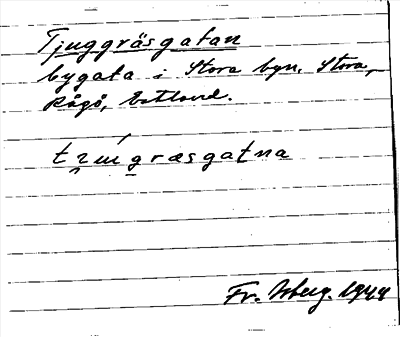 Tjuggräsgatan
bygata i Stora byn, Stora
Rågö, Estland.
græsgatna
Fr. Isberg. 1944